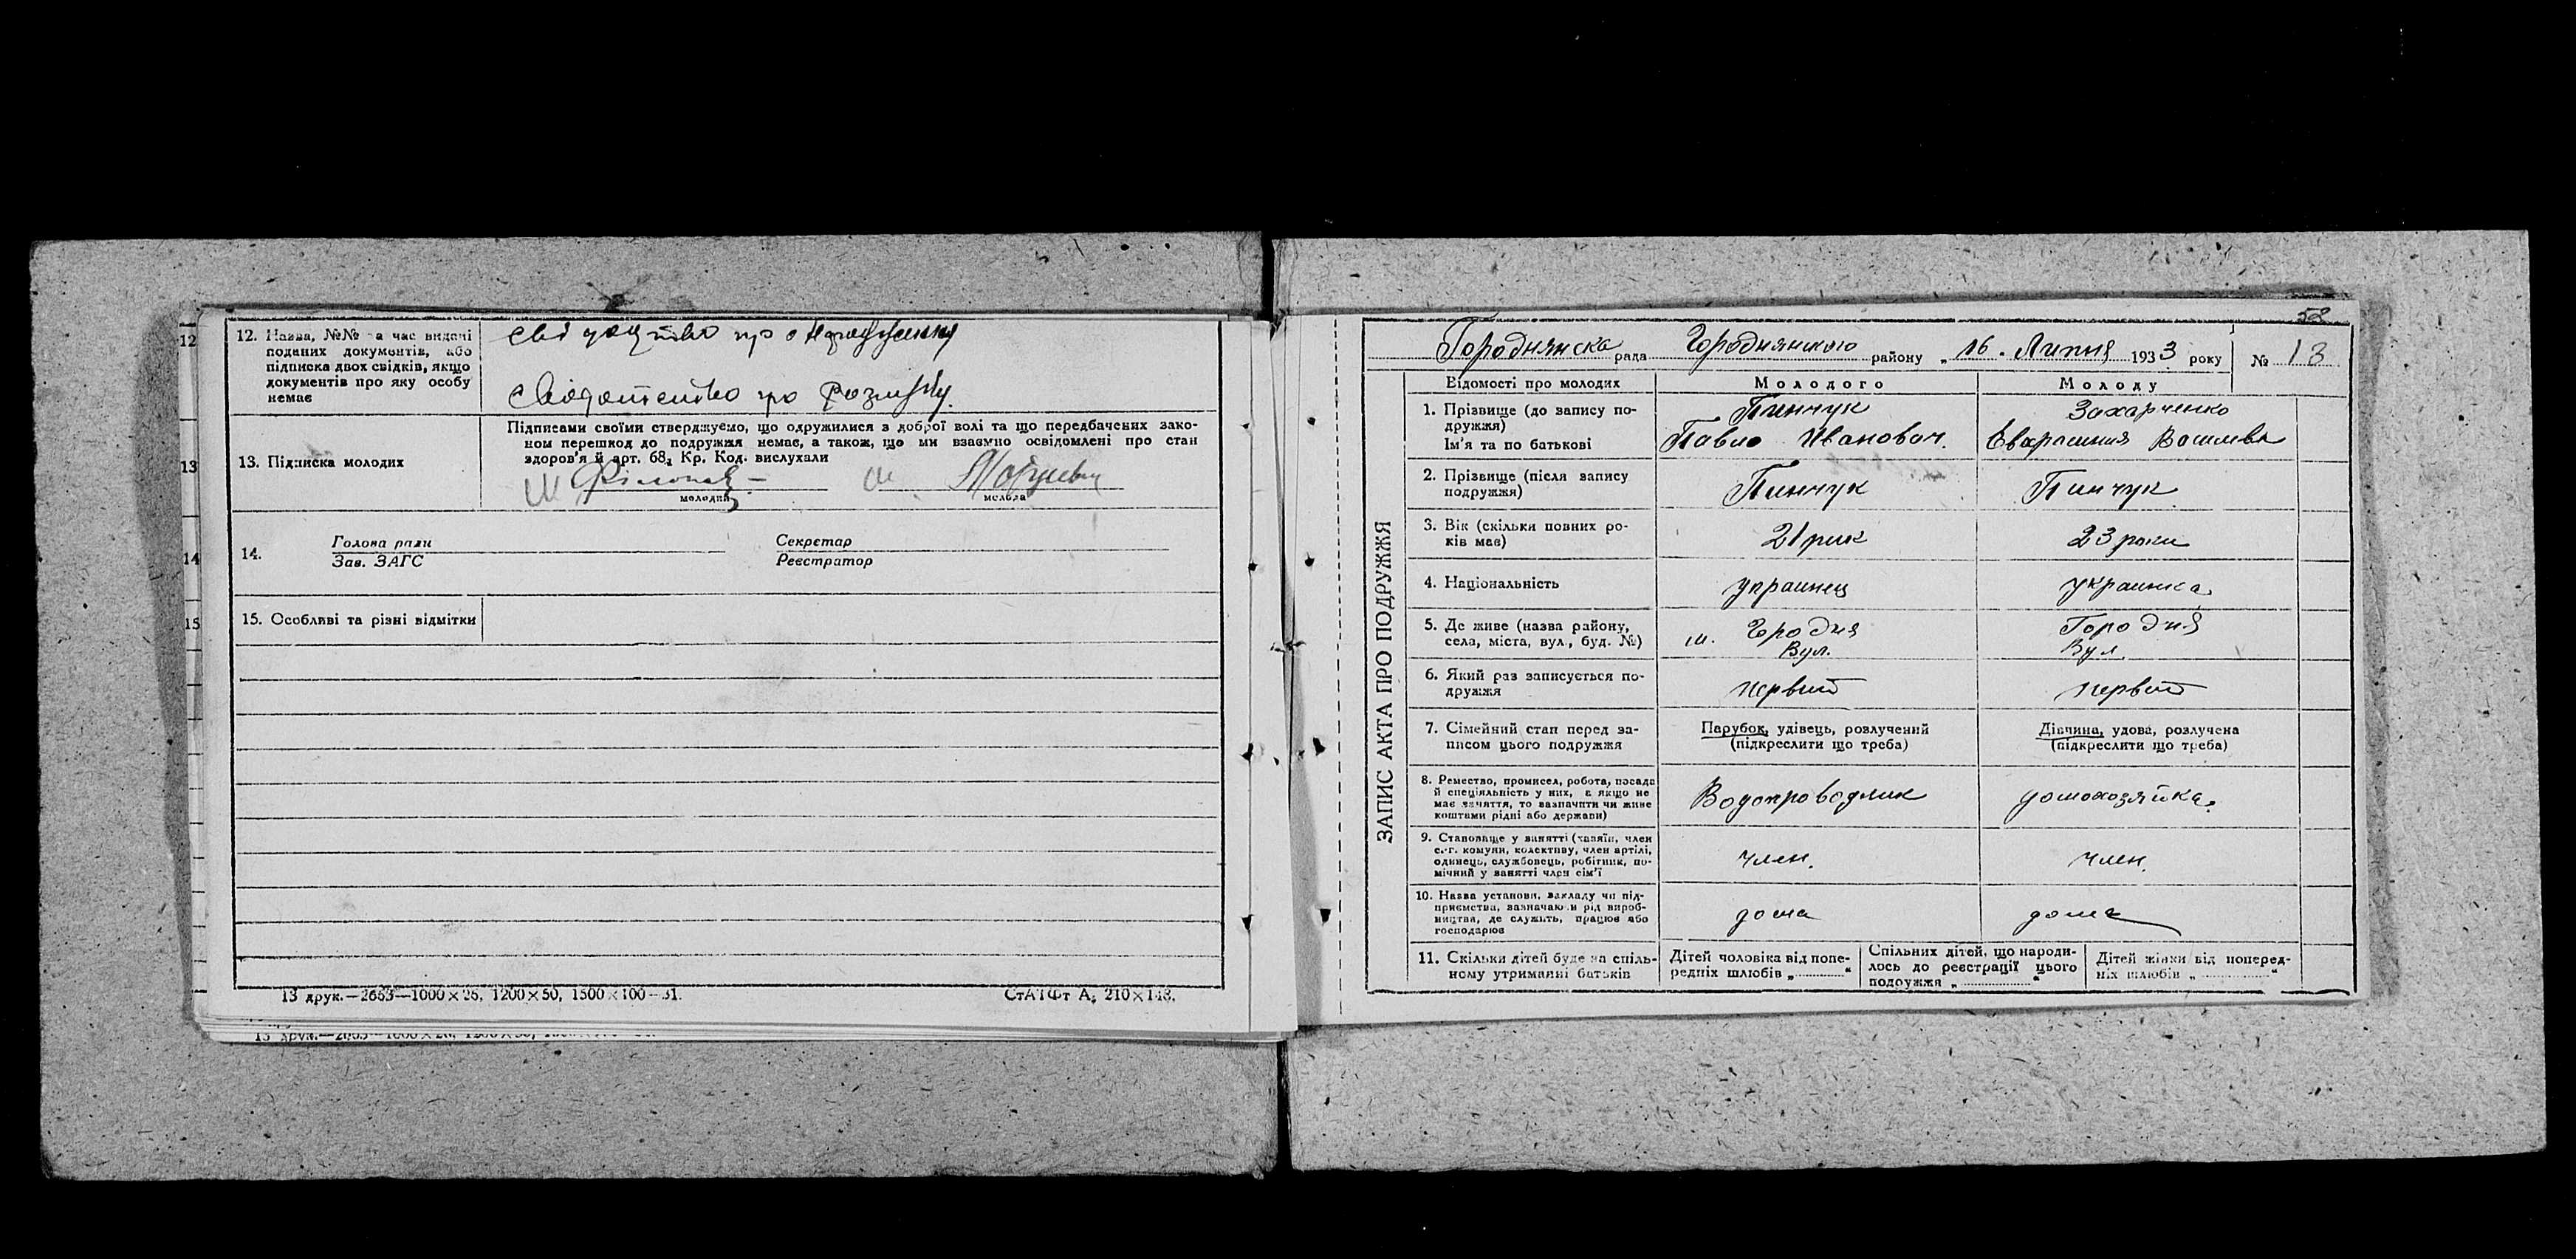 12. Назва, №№ а час видачі
поданих документів, або
підписка двох свідків, якщо
документів про яку особу
немає
про
про Розлуку.
13. Підписка молодих
Підписами своїми стверджуємо, що одружилися з доброї волі та що передбачених зако-
ном перешкод до подружжя немає, а також, що ми взаємно освідомлені про стан
здоров'я й арт. 68, Кр. Код. вислухали
молодий
молода
14.
Голова ради
Зав. ЗАГС
Секретар
Реєстратор
15. Особливі та різні відмітки
13 друк.—2663—1000×25, 1200×50, 1500×100—31.
СтАТФт А, 210×148.
12
13
14
15
52
Городнянска рада Городнянского району „16. Липня 1933 року
№ 13
ЗАПИС АКТА ПРО ПОДРУЖЖЯ
Відомості про молодих
Молодого
Молоду
1. Прізвище (до запису по-
дружжя)
Ім'я та по батькові
Пинчук
Павло Иванович.
Захарченко
2. Прізвище (після запису
подружжя)
Пинчук
Пинчук
3. Вік (скільки повних ро-
ків має)
21 рик
23 роки
4. Національність
украинец
украинка.
5. Де живе (назва району,
села, міста, вул., буд. №)
м. Городня
Вул.
Городня
Вул.
6. Який раз записується по-
дружжя
первий
первий
7. Сімейний стан перед за-
писом цього подружжя
Парубок, удівець, розлучений
(підкреслити що треба)
Дівчина, удова, розлучена
(підкреслити що треба)
8. Ремество, промисел, робота, посада
й спеціяльність у них, а якщо не
має заняття, то зазначити чи живе
коштами рідні або держави)
Водопроводчик
домохозяйка.
9. Становище у занятті (хазяїн, член
с.-г. комуни, колективу, член артілі,
одинець, службовець, робітник, по-
мічний у занятті член сім'ї
член.
член.
10. Назва установи, закладу чи під-
приємства, зазначаючи рід вироб-
ництва, де служить, працює або
господарює
дома
дома
11. Скільки дітей буде на спіль-
ному утриманні батьків
Дітей чоловіка від попе-
редніх шлюбів „ “
Спільних дітей, що народи-
лось до реєстрації цього
подружжя „ “
Дітей жінки від поперед-
ніх шлюбів „ “